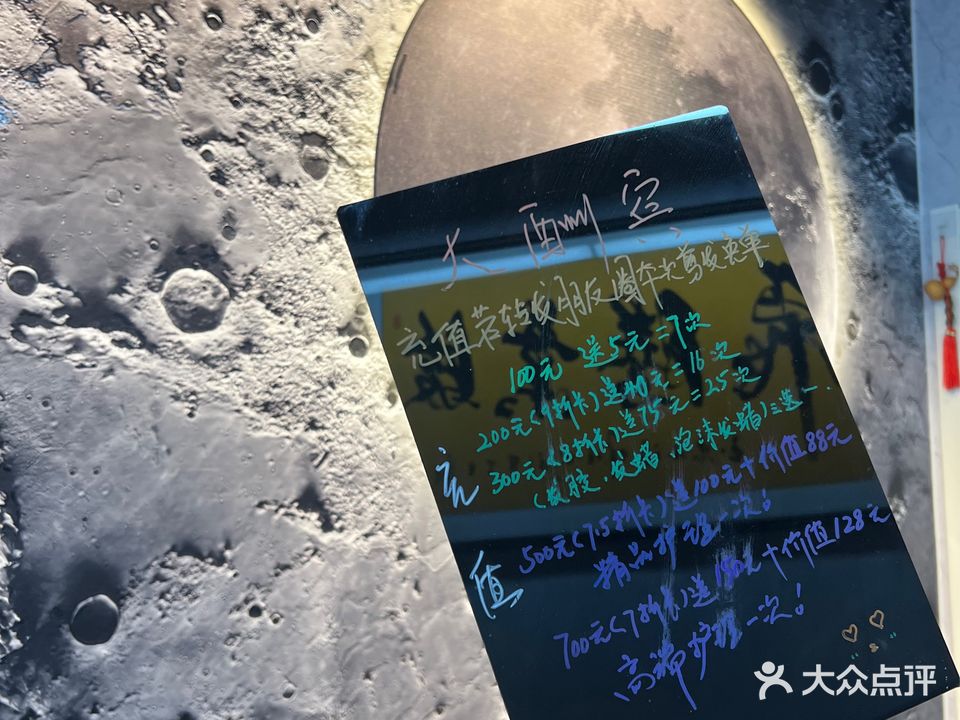 大酬宾
充值若转发朋友圈本次剪发免单
100元送5元=7次
200元(9折卡)送40元=16次
300元(8折卡)送75元=25次
(发胶、发蜡、泡沫发蜡)三选一.
充值
500元(7.5折卡)送100元+价值88元
精品护理一次!
700元(7折卡)送180元+价值128元
高端护理一次!
大众点评